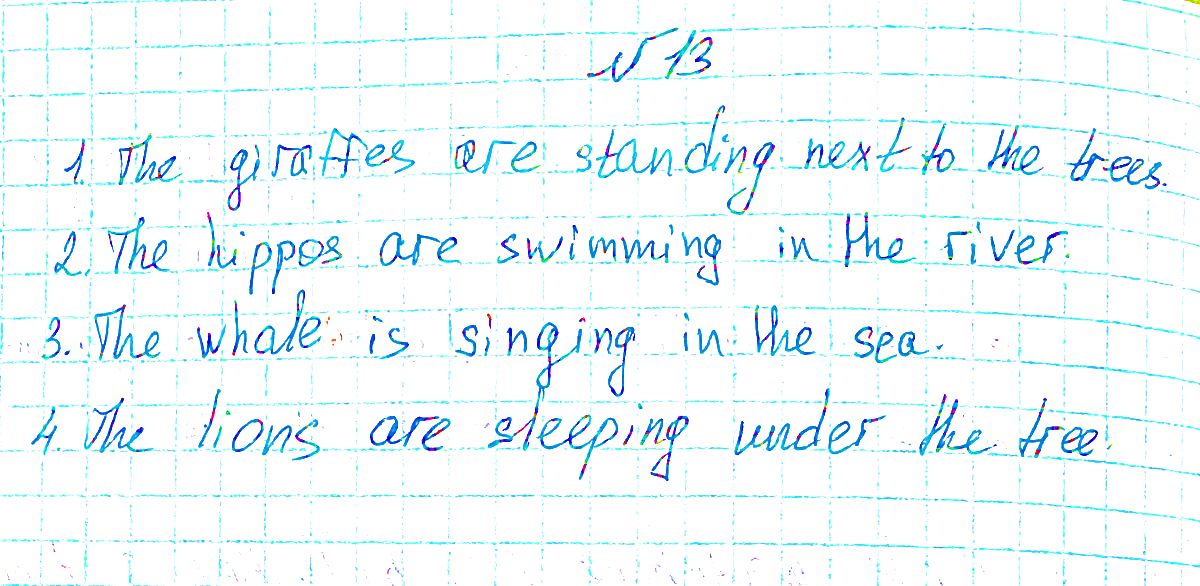 № 13
1. The giraffes are standing next to the trees.
2. The hippos are swimming in the river.
3. The whale is singing in the sea.
4. The lions are sleeping under the tree.